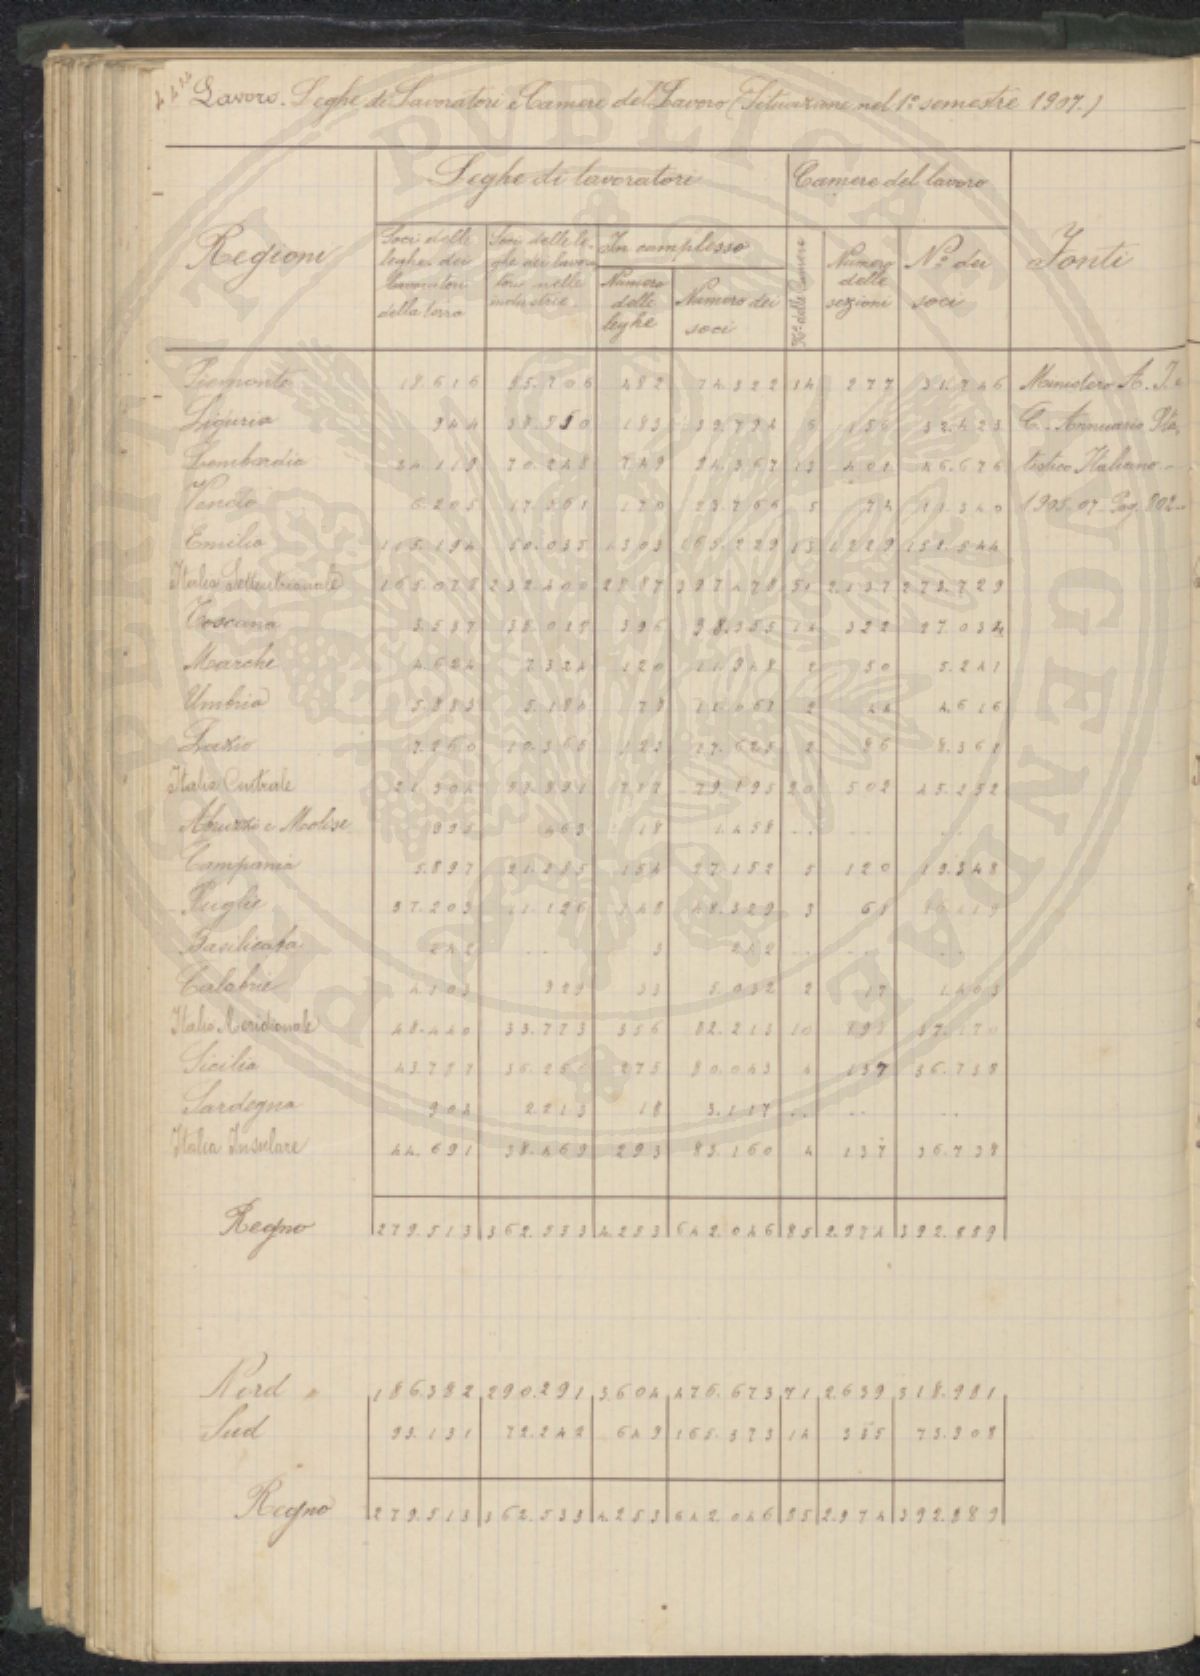 Lavoro. Leghe di Lavoratori e Camere del Lavoro (Situazione nel 1º semestre 1907.)
Regioni
Leghe di lavoratori
Camere del lavoro
Fonti
Soci delle leghe dei lavoratori della terra
Soci delle leghe dei lavoratori nelle industrie
In complesso
Numero delle leghe
Numero dei soci
Nº delle Camere
Numero delle sezioni
Nº dei soci
Piemonte 18.616 55.706 482 74.322 14 277 31.746 Ministero A. I. e
Liguria 944 183 39.794 6 156 32.423 C. Annuario Sta
Lombardia 34.119 70.248 749 13 401 46.676 tistico Italiano
Veneto 6.205 17.561 170 23.766 5 74 11.340 1905-07. Pag. 802
Emilia 115.194 50.035 1303 165.229 13 1229 151.544
Italia Settentrionale 165.078 232.400 2887 397.478 51 2137 273.729
Toscana 3.537 396 14 322 27.034
Marche 4.624 7.324 120 11.948 2 50 5.241
Umbria 5.883 5.184 78 11.067 2 44 4.616
Lazio 7.260 10.365 123 17.625 2 86 8.361
Italia Centrale 21.304 57.891 717 79.195 20 502 45.252
Abruzzi e Molise 995 463 18 1.458 .. .. ..
Campania 5.897 21.255 154 27.152 5 120 19.348
Puglie 37.203 11.126 148 48.329 3 61
Basilicata 242 .. 3 242 .. .. ..
Calabrie 4.103 929 33 5.032 2 17 1.403
Italia Meridionale 48.440 33.773 356 82.213 10 198 37.170
Sicilia 43.787 36.256 275 80.043 4 137 36.738
Sardegna 904 2213 18 3.117 .. .. ..
Italia Insulare 44.691 38.469 293 83.160 4 137 36.738
Regno 279.513 362.533 4.253 642.046 85 2.974 392.889
Nord 186.382 290.291 3.604 476.673 71 2.639 318.981
Sud 93.131 72.242 649 165.373 14 335 73.908
Regno 279.513 362.533 4.253 642.046 85 2.974 392.889